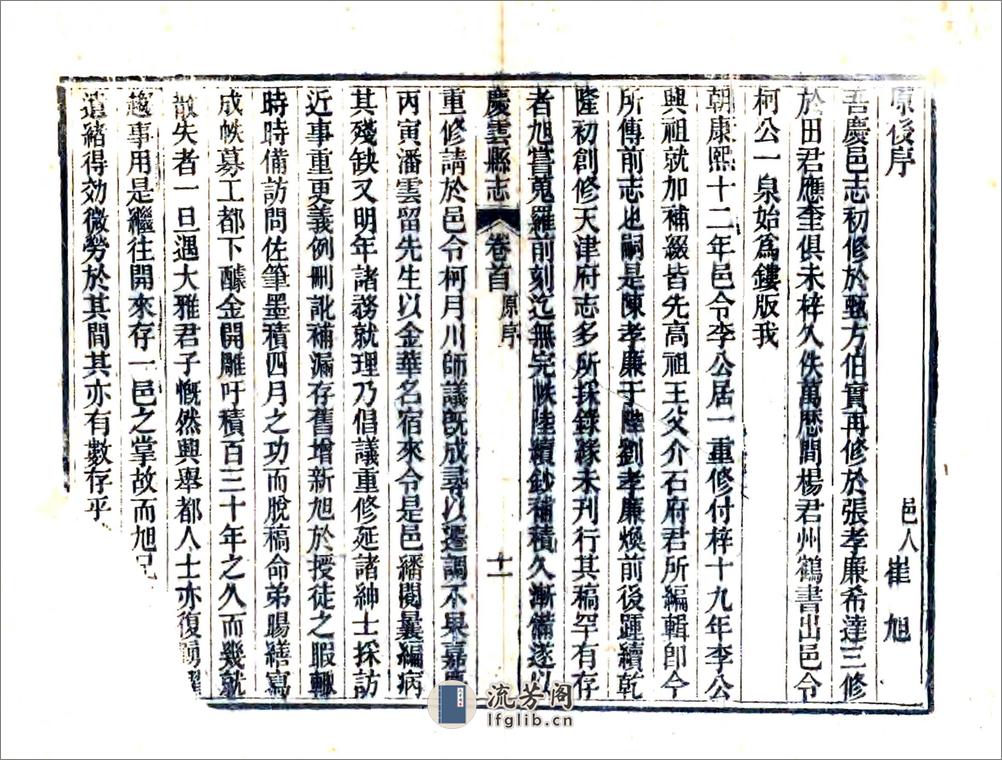 原後序
邑人崔旭
吾慶邑志初修於甄方伯實再修於張孝廉希達三修
於田君應奎俱未梓久佚萬曆間楊君州鶴書出邑令
柯公一泉始爲鏤版我
朝康熙十二年邑令李公居一重修付梓十九年李公
興祖就加補綴皆先高祖王父介石府君所編輯卽今
所傳前志也嗣是陳孝廉于陸劉孝廉煥前後踵續乾
隆初創修天津府志多所採錄緣未刊行其稿罕有存
者旭嘗蒐羅前刻迄無完帙陸續鈔補積久漸備遂以
慶雲縣志
卷首
原序
十一
重修請於邑令柯月川師議旣成尋以遷調不果嘉慶
丙寅潘雲留先生以金華名宿來令是邑繙閱曩編病
其殘缺又明年諸務就理乃倡議重修延諸紳士採訪
近事重更義例刪訛補漏存舊增新旭於授徒之暇輙
時時備訪問佐筆墨積四月之功而脫稿命弟暘繕寫
成帙募工都下醵金開雕吁積百三十年之久而幾就
散失者一旦遇大雅君子慨然興舉都人士亦復
趨事用是繼往開來存一邑之掌故而旭
遺緒得効微勞於其間其亦有數存乎
流芳阁
lfglib.cn